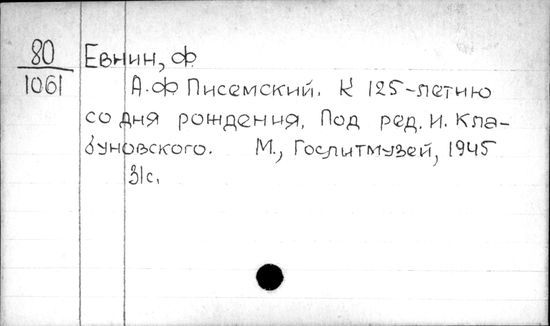 80
1061
Евнин, Ф.
А.Ф Писемский. К 125-летию
со дня рождения. Под ред. И. Кла-
буновского. М., Гослитмузей, 1945
31с.